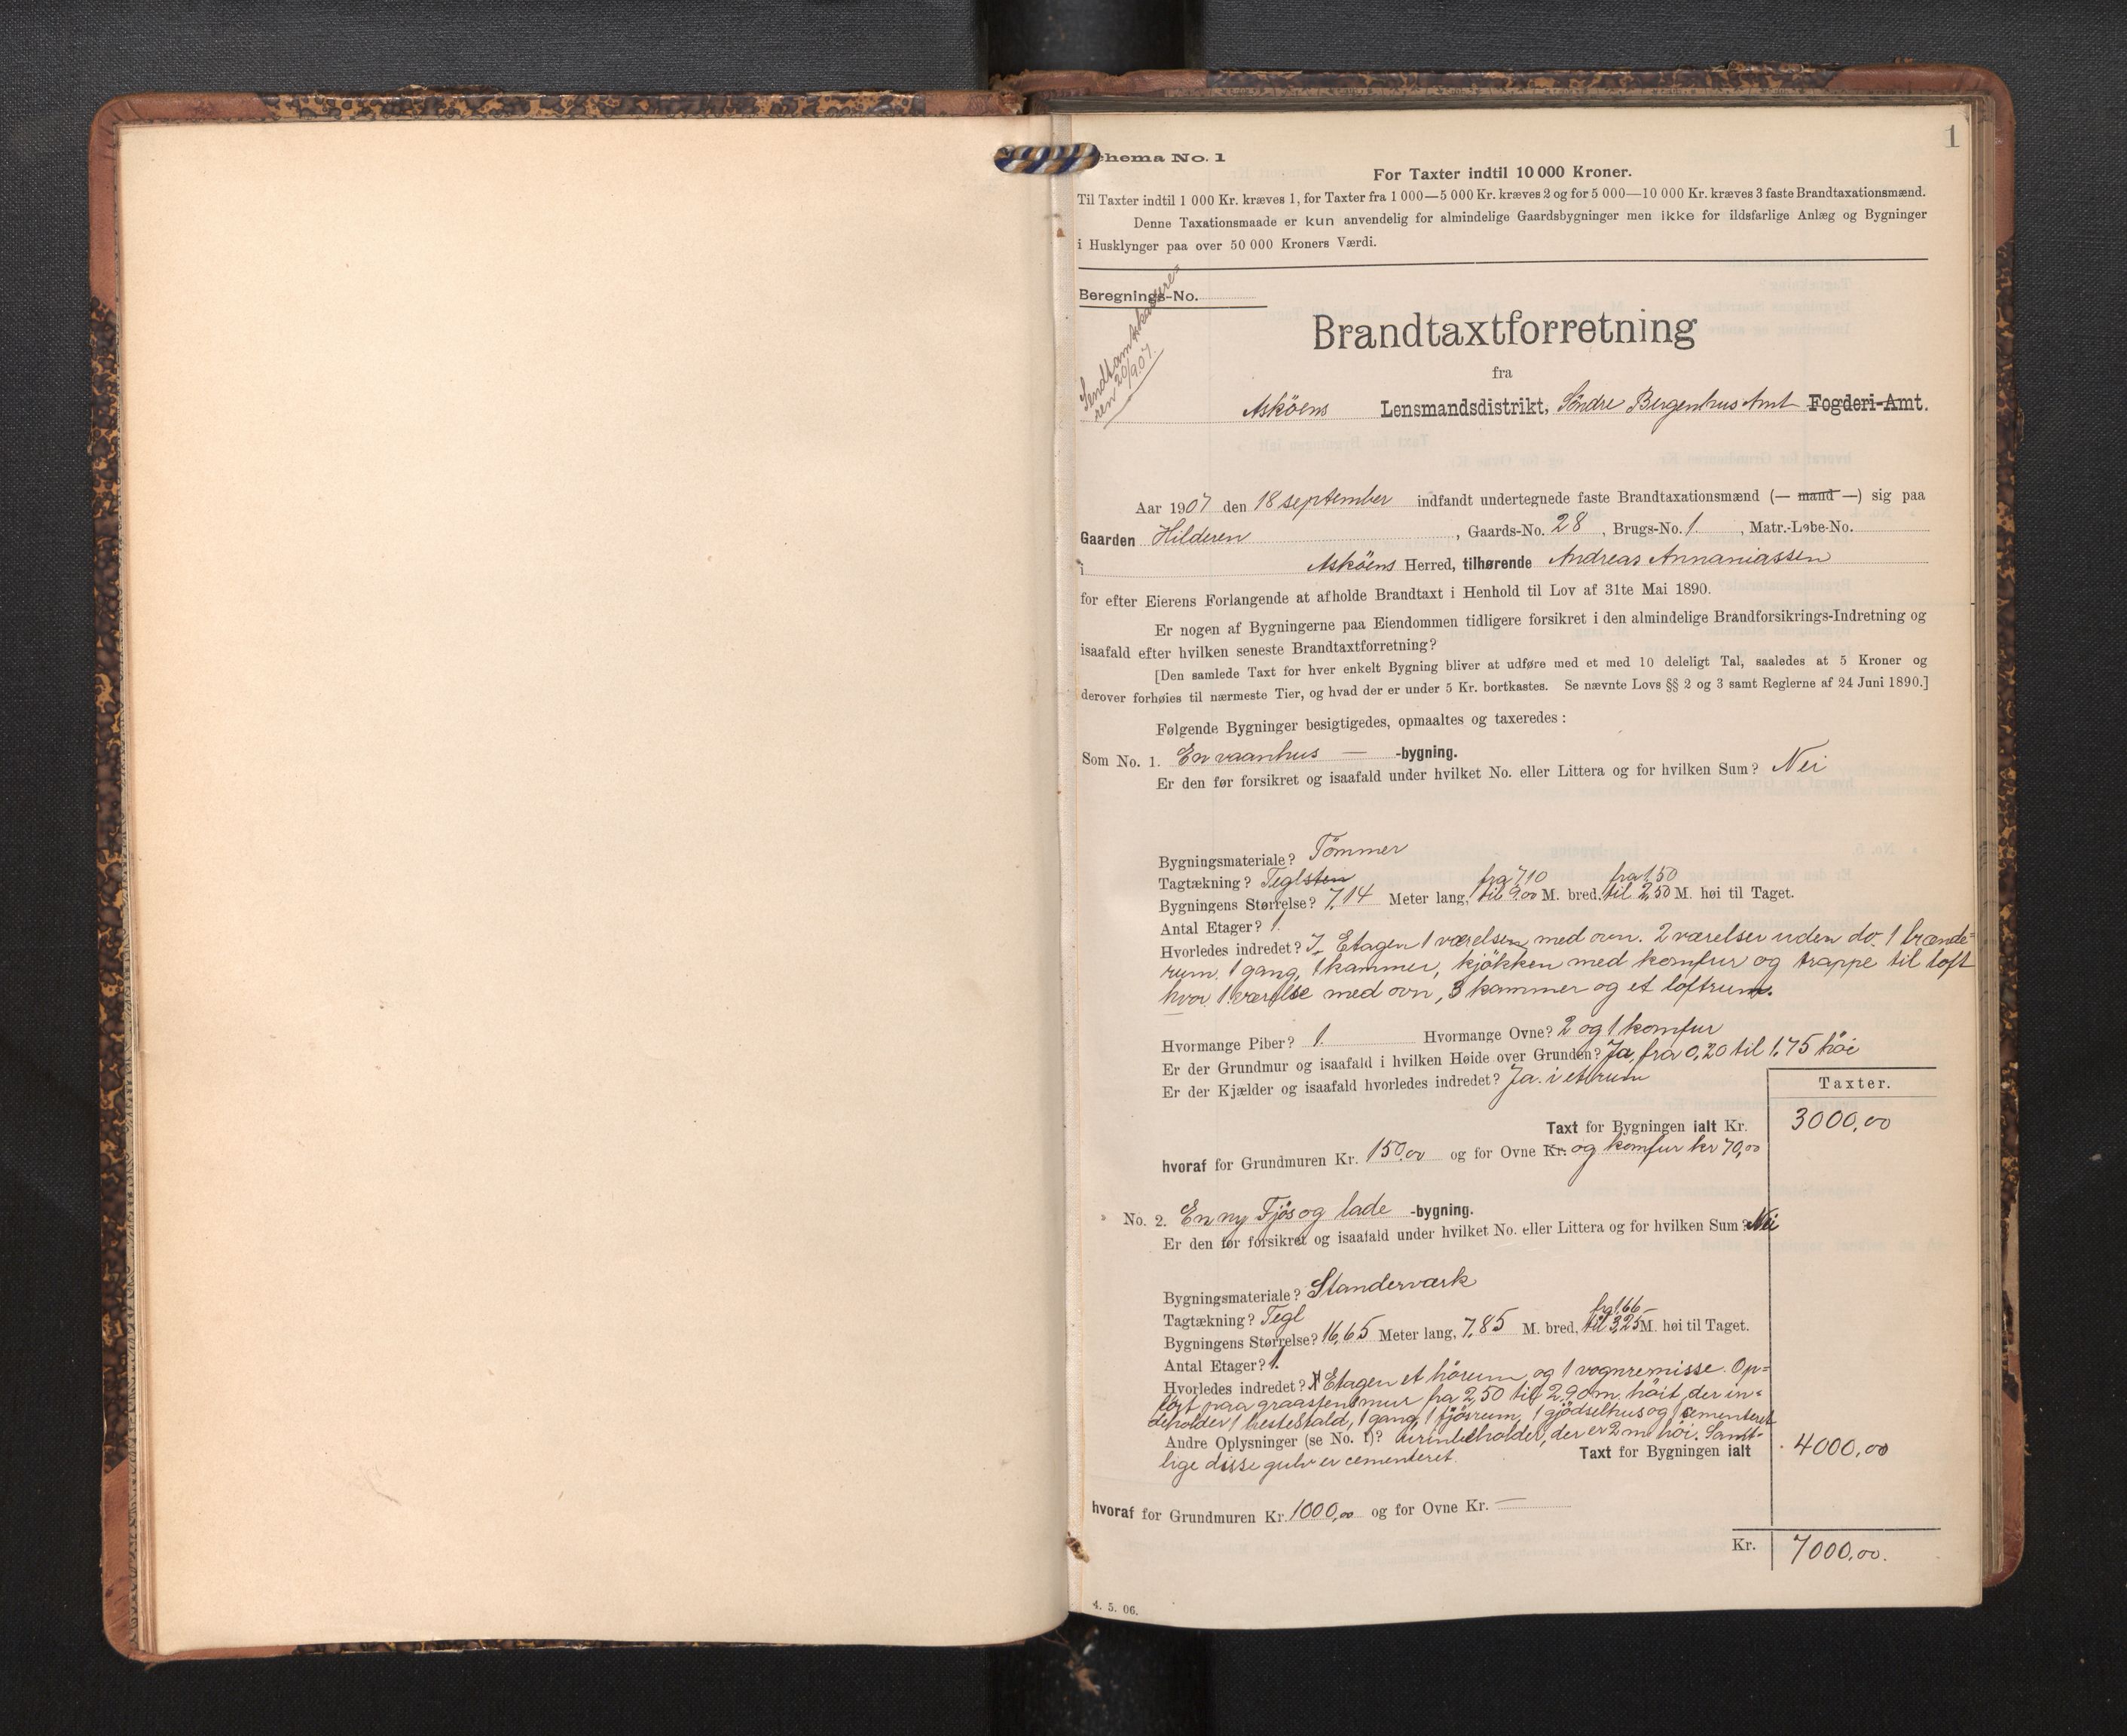 1
Schema No. 1
For Taxter indtil 10 000 Kroner.
Til Taxter indtil 1 000 Kr. kræves 1, for Taxter fra 1 000—5 000 Kr. kræves 2 og for 5 000—10 000 Kr. kræves 3 faste Brandtaxationsmænd.
Denne Taxationsmaade er kun anvendelig for almindelige Gaardsbygninger men ikke for ildsfarlige Anlæg og Bygninger
i Husklynger paa over 50 000 Kroners Værdi.
Beregnings-No.
Sendt amtskassere=
ren 20/9.07.
Brandtaxtforretning
fra
Asköens Lensmandsdistrikt, Söndre Bergenhus Amt Fogderi-Amt.
Aar 1907 den 18 september indfandt undertegnede faste Brandtaxationsmænd (— mand —) sig paa
Gaarden Hilderen, Gaards-No. 28, Brugs-No. 1., Matr.-Løbe-No.
i Asköens Herred, tilhørende Andreas Annaniassen
for efter Eierens Forlangende at afholde Brandtaxt i Henhold til Lov af 31te Mai 1890.
Er nogen af Bygningerne paa Eiendommen tidligere forsikret i den almindelige Brandforsikrings-Indretning og
isaafald efter hvilken seneste Brandtaxtforretning?
[Den samlede Taxt for hver enkelt Bygning bliver at udføre med et med 10 deleligt Tal, saaledes at 5 Kroner og
derover forhøies til nærmeste Tier, og hvad der er under 5 Kr. bortkastes. Se nævnte Lovs §§ 2 og 3 samt Reglerne af 24 Juni 1890.]
Følgende Bygninger besigtigedes, opmaaltes og taxeredes :
Som No. 1. En vaanhus — -bygning.
Er den før forsikret og isaafald under hvilket No. eller Littera og for hvilken Sum? Nei
Bygningsmateriale? Tömmer
Tagtækning? Teglsten
Bygningens Størrelse? 7,14 Meter lang, fra 7.10 til 9.00 M. bred, fra 1.50 til 2,50 M. høi til Taget.
Antal Etager? 1.
Hvorledes indredet? I. Etagen 1 værelsen med ovn. 2 værelser uden do. 1 brænde=
rum, 1 gang, 1 kammer, kjökken med komfur og trappe til loft
hvor 1 værelse med ovn, 3 kammer og et loftrum.
Hvormange Piber? 1. Hvormange Ovne? 2 og 1 komfur
Er der Grundmur og isaafald i hvilken Høide over Grunden? Ja, fra 0,20 til 1,75 höi
Er der Kjælder og isaafald hvorledes indredet? Ja. i et rum
Taxter.
Taxt for Bygningen ialt Kr. 3000,00
hvoraf for Grundmuren Kr. 150,00 og for Ovne Kr. og komfur kr 70,00
No. 2. En ny Fjös og lade -bygning.
Er den før forsikret og isaafald under hvilket No. eller Littera og for hvilken Sum? Nei
Bygningsmateriale? Standerværk
Tagtækning? Tegl
Bygningens Størrelse? 16,65 Meter lang, 7,85 M. bred, fra 1,66 til 3,25 M. høi til Taget.
Antal Etager? 1.
Hvorledes indredet? I Etagen et hörum og 1 vognremisse. Op=
fört paa graastensmur fra 2,50 til 2,90 m. höit, der in=
deholder 1 hestestald, 1 gang, 1 fjösrum, 1 gjödselhus og 1 cementeret
Andre Oplysninger (se No. 1)? urinbeholder, der er 2 m höi. Samt-
lige disse gulv er cementeret.
Taxt for Bygningen ialt 4000,00
hvoraf for Grundmuren Kr. 1000,00 og for Ovne Kr. —
Kr. 7000,00.
4. 5. 06.